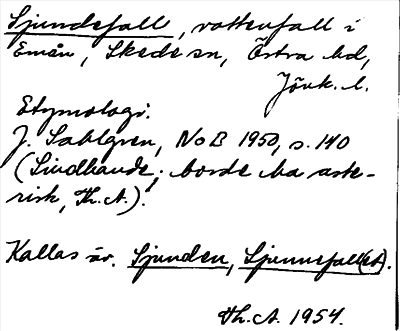 Sjundefall, vattenfall i
Emån, Skede sn, Östra hd,
Jönk. l.
Etymologi:
J. Sahlgren, NoB 1950, s. 140
(Siudhande; borde ha aste-
risk, Th. A.).
Kallas äv. Sjunden, Sjunnefall(et).
Th. A. 1954.